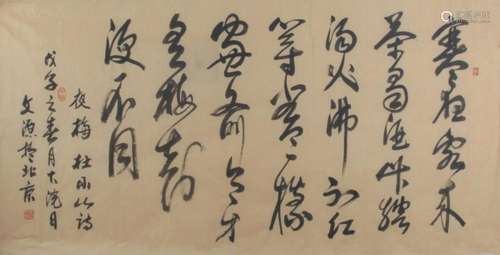 寒夜客来
茶當酒竹爐
湯火沸初紅
尋常一樣
窗前月才
有梅花
便不同
夜梅 杜小山诗
戊子之春月大浣日
文源於北京